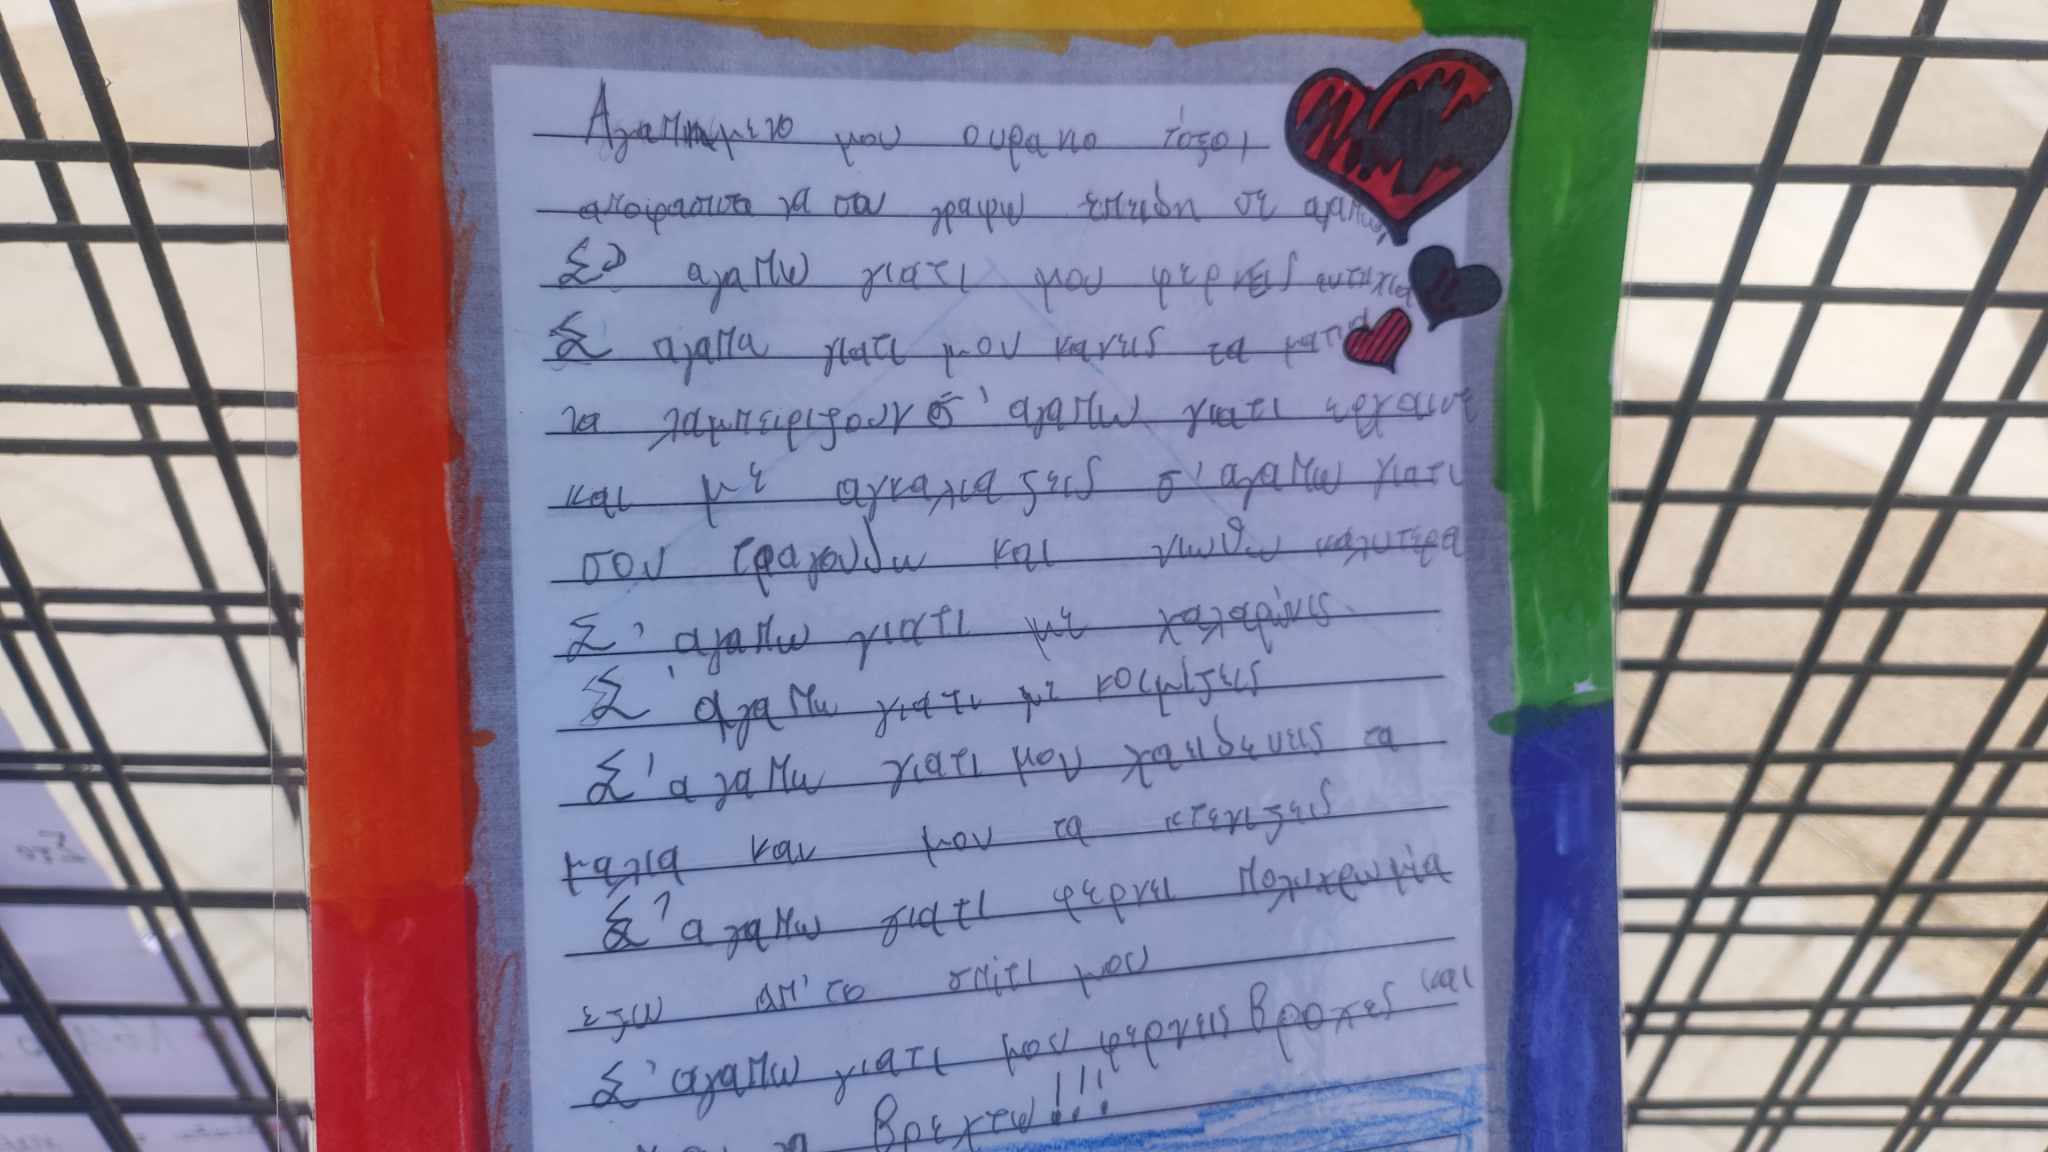 Αγαπημενο μου ουρανο τόξο,
αποφασισα να σου γραψω επειδη σε αγαπω,
Σ' αγαπω γιατι μου φερνεις ευτυχια
Σ αγαπα γιατι μου κανεις τα ματια
να λαμπειριζουν σ' αγαπω γιατι ερχαισε
και με αγκαλιαζεις σ' αγαπω γιατι
σου τραγουδω και νιωθω καλυτερα
Σ' αγαπω γιατι με χαλαρώνεις
Σ' αγαπω γιατι με κοιμίζεις
Σ' αγαπω γιατι μου χαειδευεις τα
μαλια και μου τα κτενιζεις
Σ' αγαπω γιατι φερνει πολυχρωμία
εξω απ' το σπίτι μου
Σ' αγαπω γιατι μου φερνεις βροχες και
να βρεχτω!!!